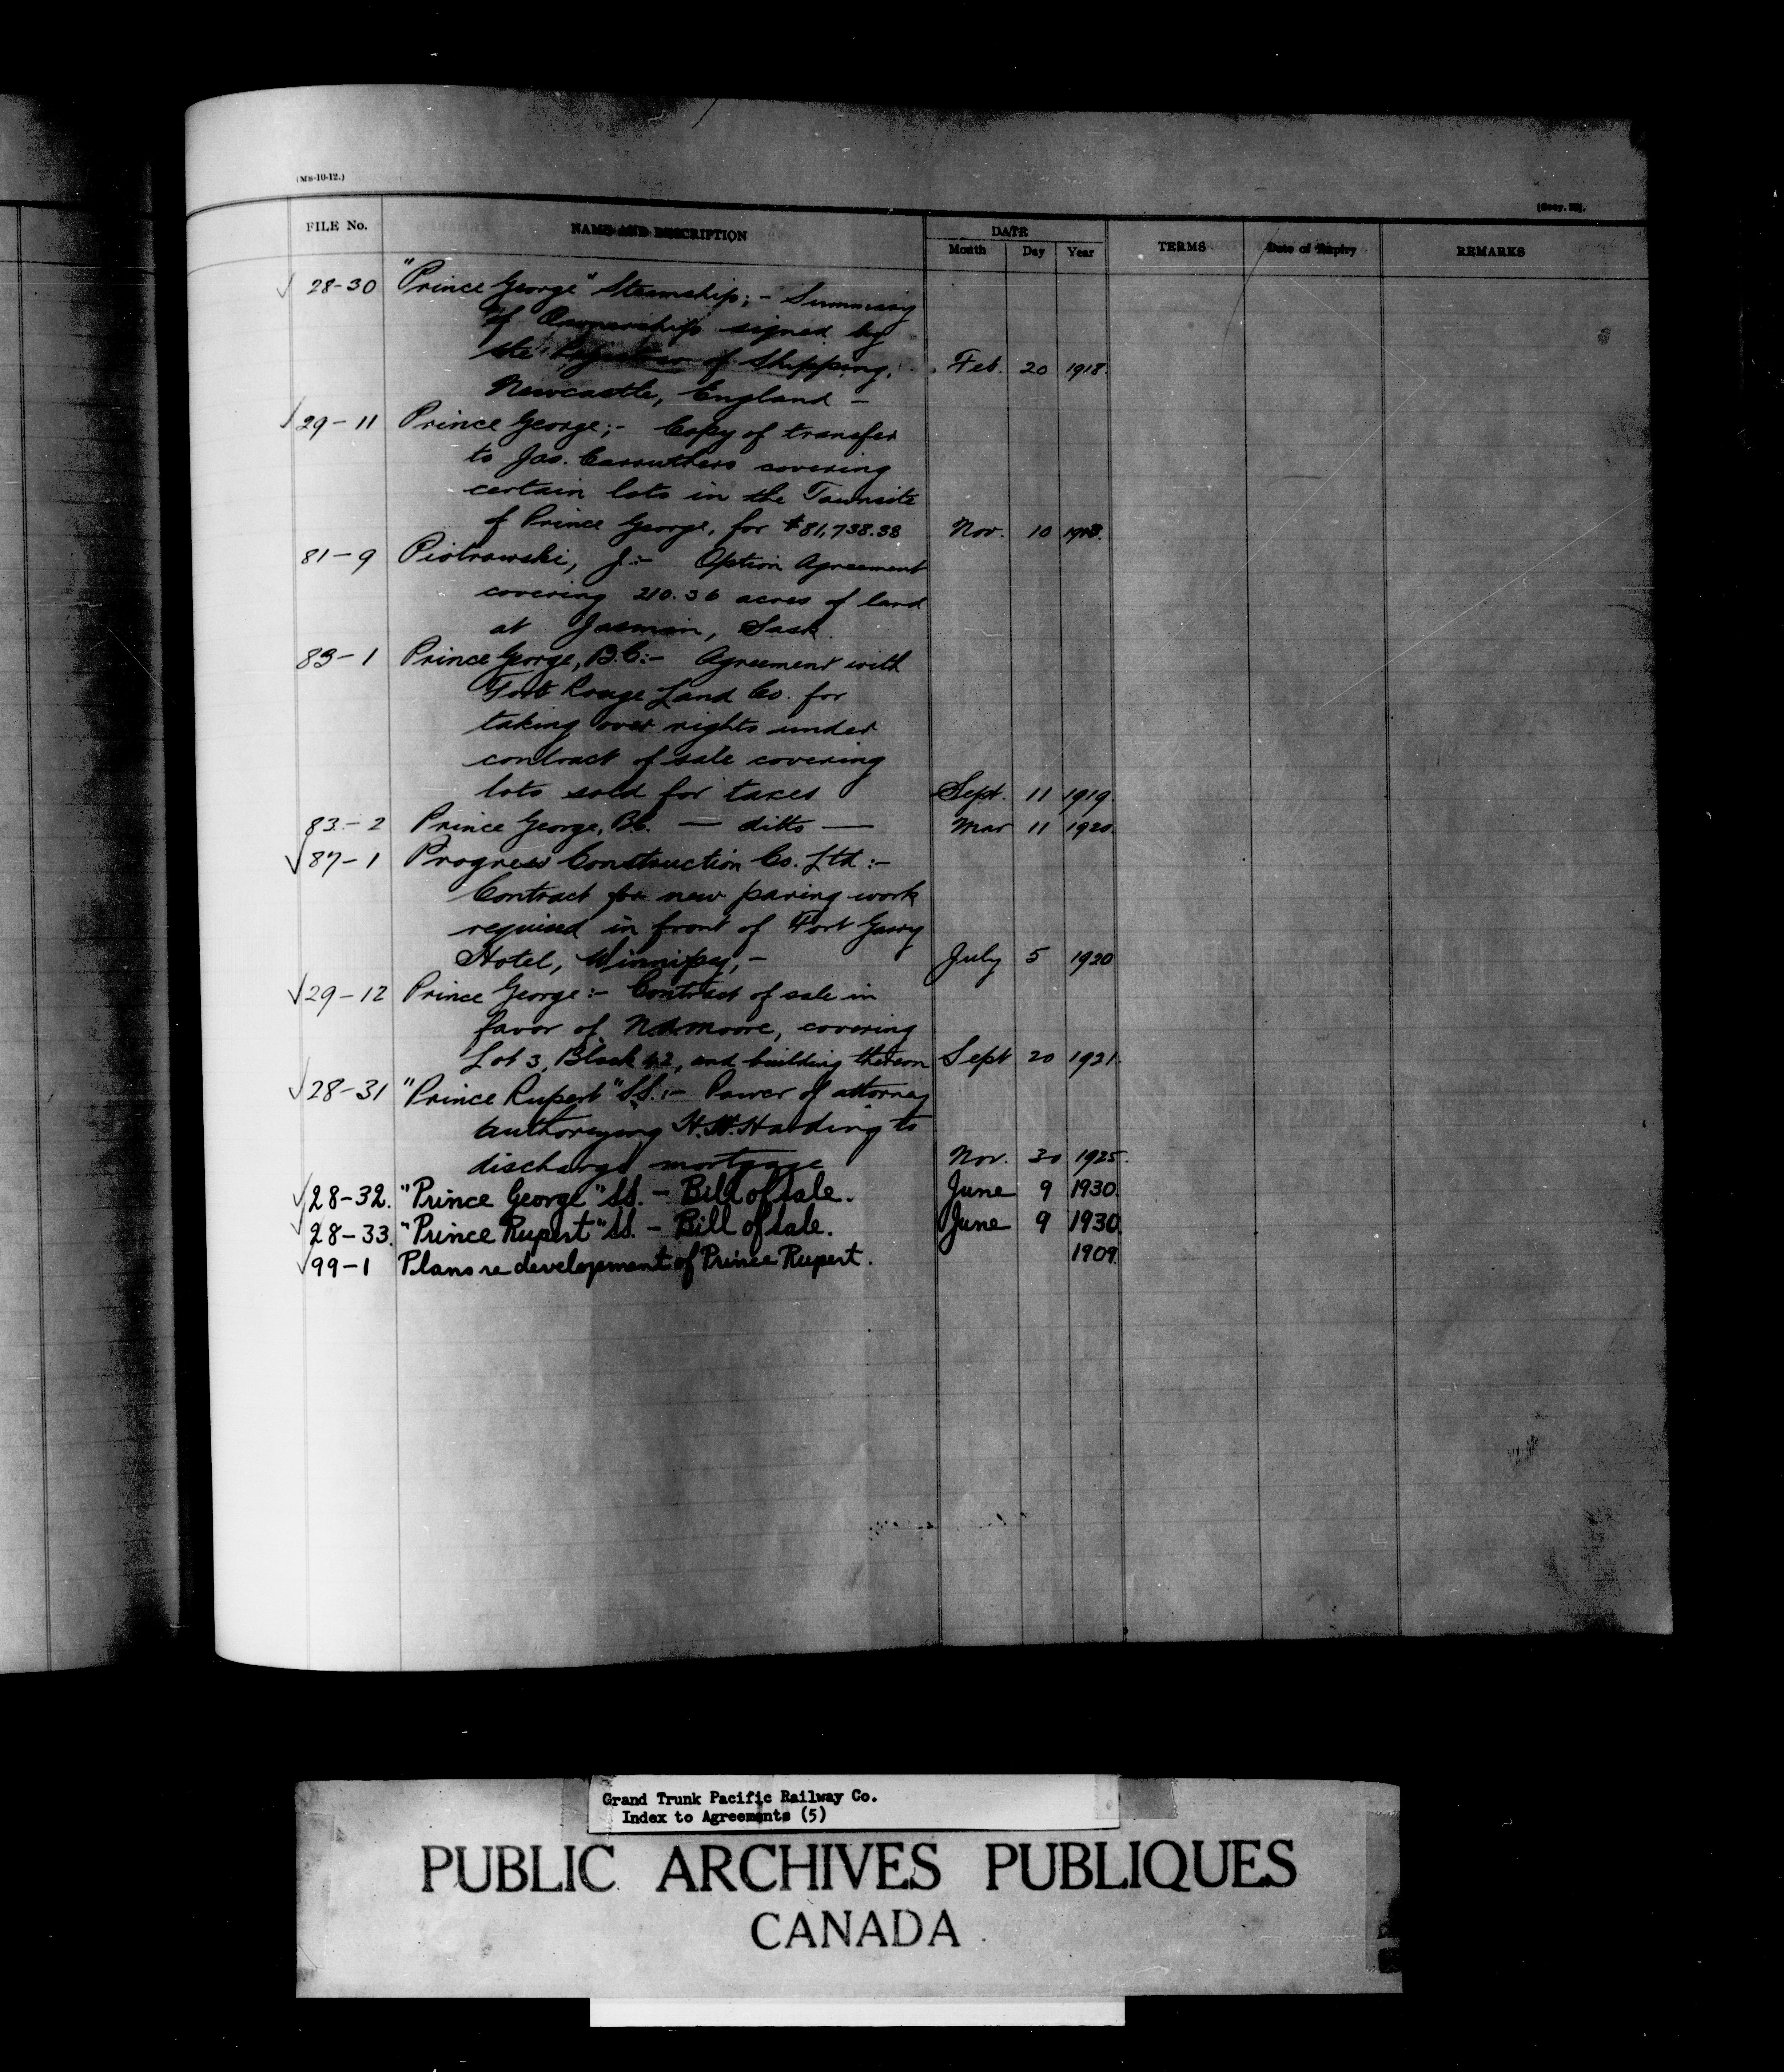 (MS-10-12.)
[Secy. 32].
FILE No. NAME AND DESCRIPTION DATE TERMS Date of Expiry REMARKS
Month Day Year
√ 28-30 "Prince George" Steamship; - Summary
of Ownership signed by
the Registrar of Shipping, Feb. 20 1918.
Newcastle, England -
√ 29-11 Prince George; - Copy of transfer
to Jas. Carruthers covering
certain lots in the Townsite
of Prince George, for $81,738.38 Nov. 10
81-9 Piotrowski, J:- Option Agreement
covering 210.36 acres of land
at Jasmin, Sask.
83-1 Prince George, B.C:- Agreement with
Fort Rouge Land Co. for
taking over rights under
contract of sale covering
lots sold for taxes Sept. 11 1919
83-2 Prince George, B.C. — ditto — Mar 11 1920.
√ 87-1 Progress Construction Co. Ltd:-
Contract for new paving work
required in front of Fort Garry
Hotel, Winnipeg, - July 5 1920
√ 29-12 Prince George:- Contract of sale in
favor of Moore, covering
Lot 3, Block 42, and building thereon Sept 20 1921.
√ 28-31 "Prince Rupert" SS.:- Power of attorney
authorizing Harding to
discharge mortgage Nov. 30 1925.
√ 28-32. "Prince George" SS. - Bill of Sale. June 9 1930.
√ 28-33. "Prince Rupert" SS. - Bill of Sale. June 9 1930.
√ 99-1 Plans re development of Prince Rupert. 1909.
Grand Trunk Pacific Railway Co.
Index to Agreements (5)
PUBLIC ARCHIVES PUBLIQUES
CANADA